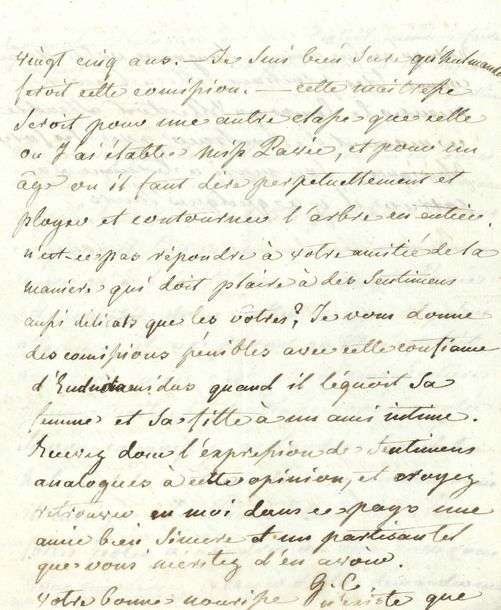 vingt cinq ans. — Je suis bien sure qu'hulmande
feroit cette comission. — cette maitresse
seroit pour une autre classe que celle
ou J'ai établie Miss Parrie, et pour un
âge ou il faut dere perpetuellement et
ployer et contourner l'arbre en entier.
n'est-ce pas répondre à votre amitié de la
maniere qui doit plaire à des Sentimens
aussi délicats que les vôtres? Je vous donne
des comissions pénibles avec cette confiance
d'Eudamidas quand il léguoit sa
femme et sa fille à un ami intime.
Recevez donc l'expression de Sentimens
analogues à cette opinion, et croyez
retrouver en moi dans ce pays une
amie bien sincere et un partisan tel
que vous meritez d'en avoir.
G. C.
votre bonne nourisse que